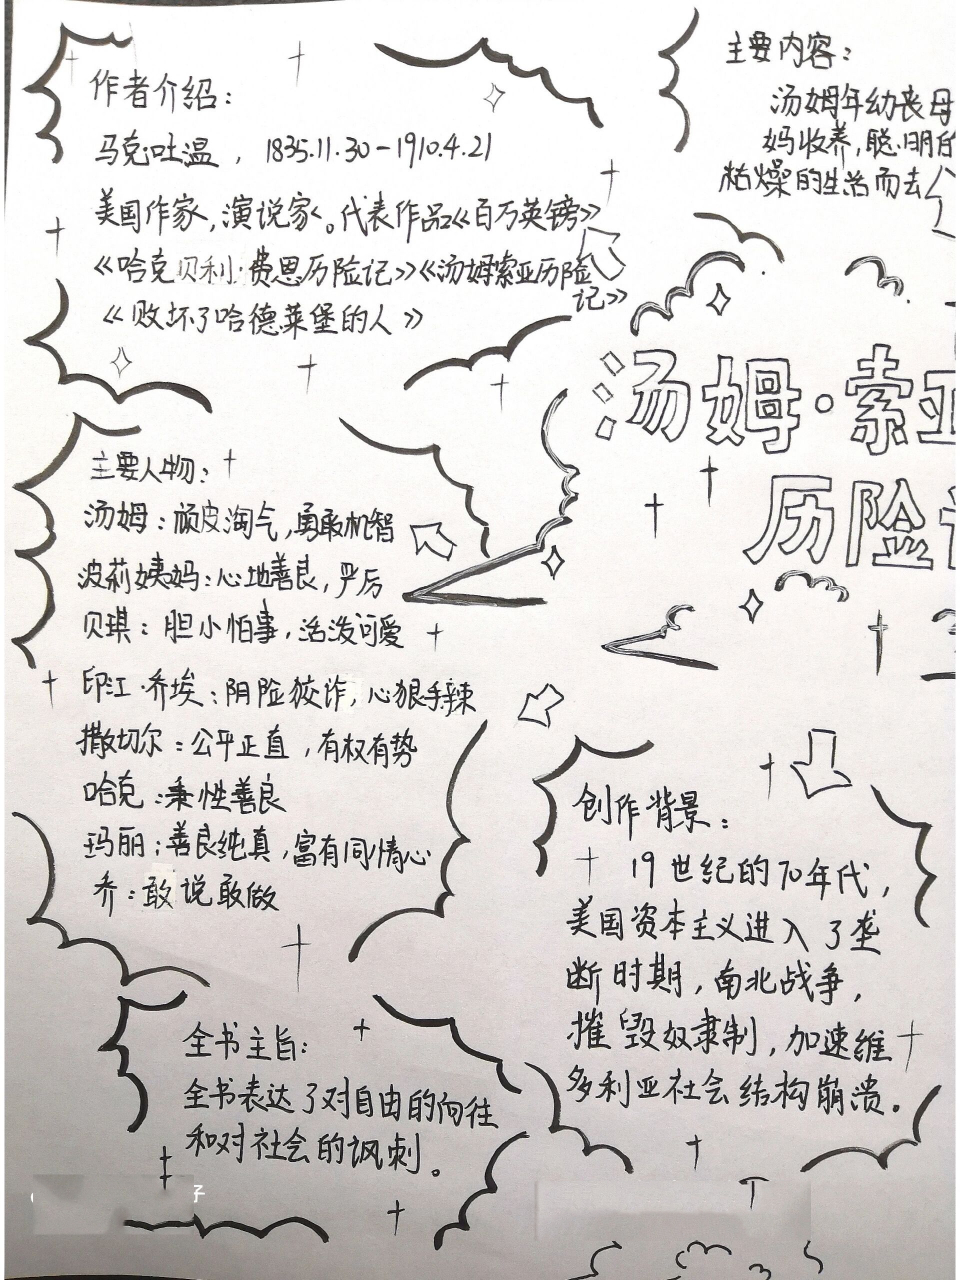 作者介绍：
马克·吐温，1835.11.30-1910.4.21
美国作家，演说家。代表作品《百万英镑》
《哈克贝利·费恩历险记》《汤姆索亚历险
记》
《败坏了哈德莱堡的人》
主要内容：
汤姆年幼丧母
妈收养，聪明
枯燥的生活而去
汤姆·索亚
历险
主要人物：
汤姆：顽皮淘气，勇敢机智
波莉姨妈：心地善良，严厉
贝琪：胆小怕事，活泼可爱
印江·乔埃：阴险狡诈，心狠手辣
撒切尔：公平正直，有权有势
哈克：秉性善良
玛丽：善良纯真，富有同情心
乔：敢说敢做
创作背景：
19世纪的70年代，
美国资本主义进入了垄
断时期，南北战争，
摧毁奴隶制，加速维
多利亚社会结构崩溃。
全书主旨：
全书表达了对自由的向往
和对社会的讽刺。
子